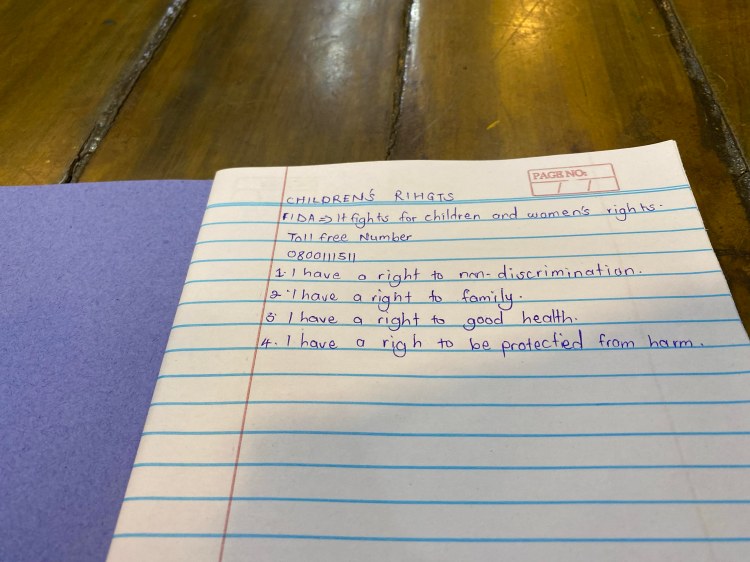 PAGE NO:
/ /
CHILDREN'S RIHGTS
FIDA => It fights for children and women's rights.
Toll free Number
0800111511
1. I have a right to non-discrimination.
2. I have a right to family.
3. I have a right to good health.
4. I have a righ to be protected from harm.